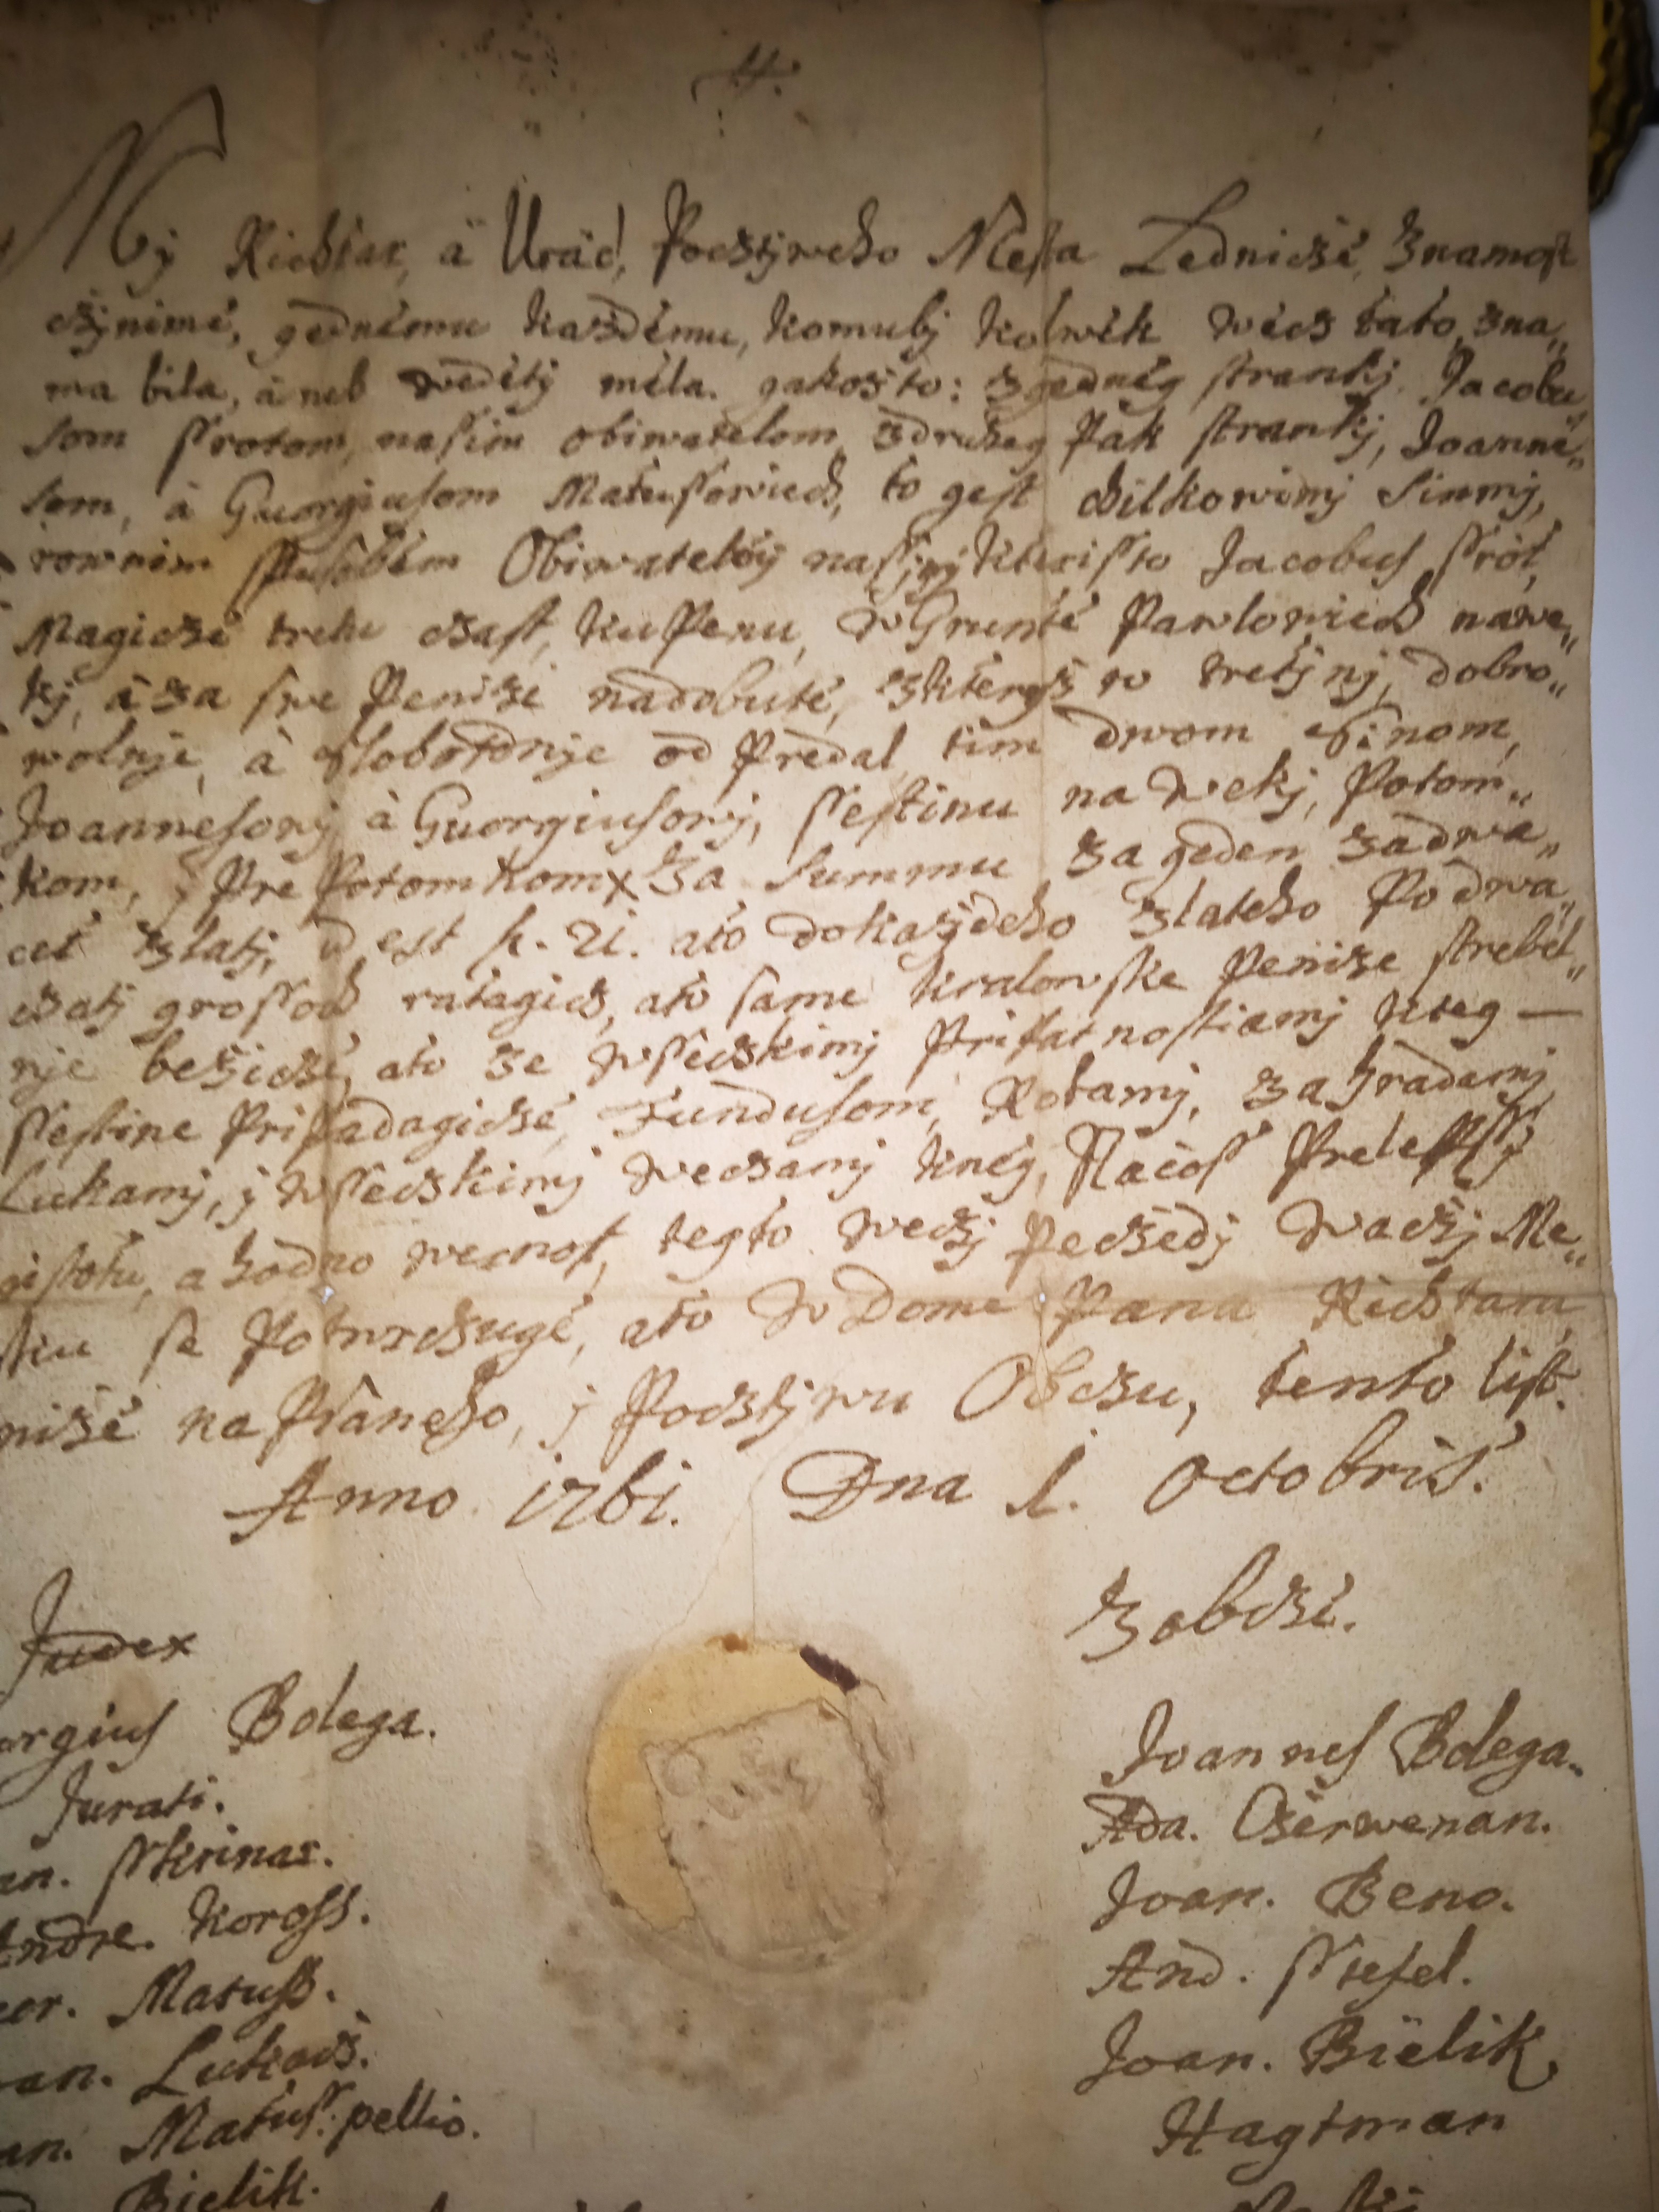 My Richtar, à Urád, Pocztjweho Mesta Lednicze, Znamost
czjnimé, gednému každému, komubj kolwék wécz táto, zna„
ma bila, á neb weďétj méla. gakožto: zgednég strankj. Jacobu„
som Srotom, nasim obiwatelom, zdruheg Pák strankj, Joanné„
som, à Guorgiusom Matussowich, to gest Bilkowimj Sinmj,
rownim spusobém Obiwatelmj nassjmj kterissto Jacobus Srót,
Magicze tretu czast, kuPenu, w Grunté Pawlowich nawe„
kj, à za swe Penize nadobuté, zkterég w tretjnj, dobro„
wolnje, à slobodnje od Predal tim dwom Sinom,
Joannesowj à Guorgiusowj, sestinu na wekj, Potom„
kom, j Pre Potomkom x Za Summu za geden zadwa„
cet zlatj, id est f. 21. ató dokaždeho zlateho Po dwa„
czatj grossoch rátagicz, ató same kralowske Penize strébél„
nje bežicze, ató ze wsseczkimj Prilatnostiamj kteg —
sestine Pripadagicze, Fundusom, Rolamj, zahradamj
Lukamj, j wsseczkimj weczamj knég, Nacoss Prelepssj
gistotu, a hodno wernost, tegto weczj Peczedj waczj Me„
stiu se Potwrdzugé, ató w Dome Pana Richtara
niže naPsaneho, j Pocztjwu Obczu, tento list.
Anno 1761. Dna 1. Octobris.
Judex
orgius Bolega.
Jurati.
an. Skrinar.
Andre. Koross.
eor. Matuss.
an. Lukacz.
an. Matuss. pellio.
Bielik.
Zobcze.
Joannes Bolega.
Ada. Czerwenan.
Joan. Beno.
And. Stefel.
Joan. Bielik
Hagtman